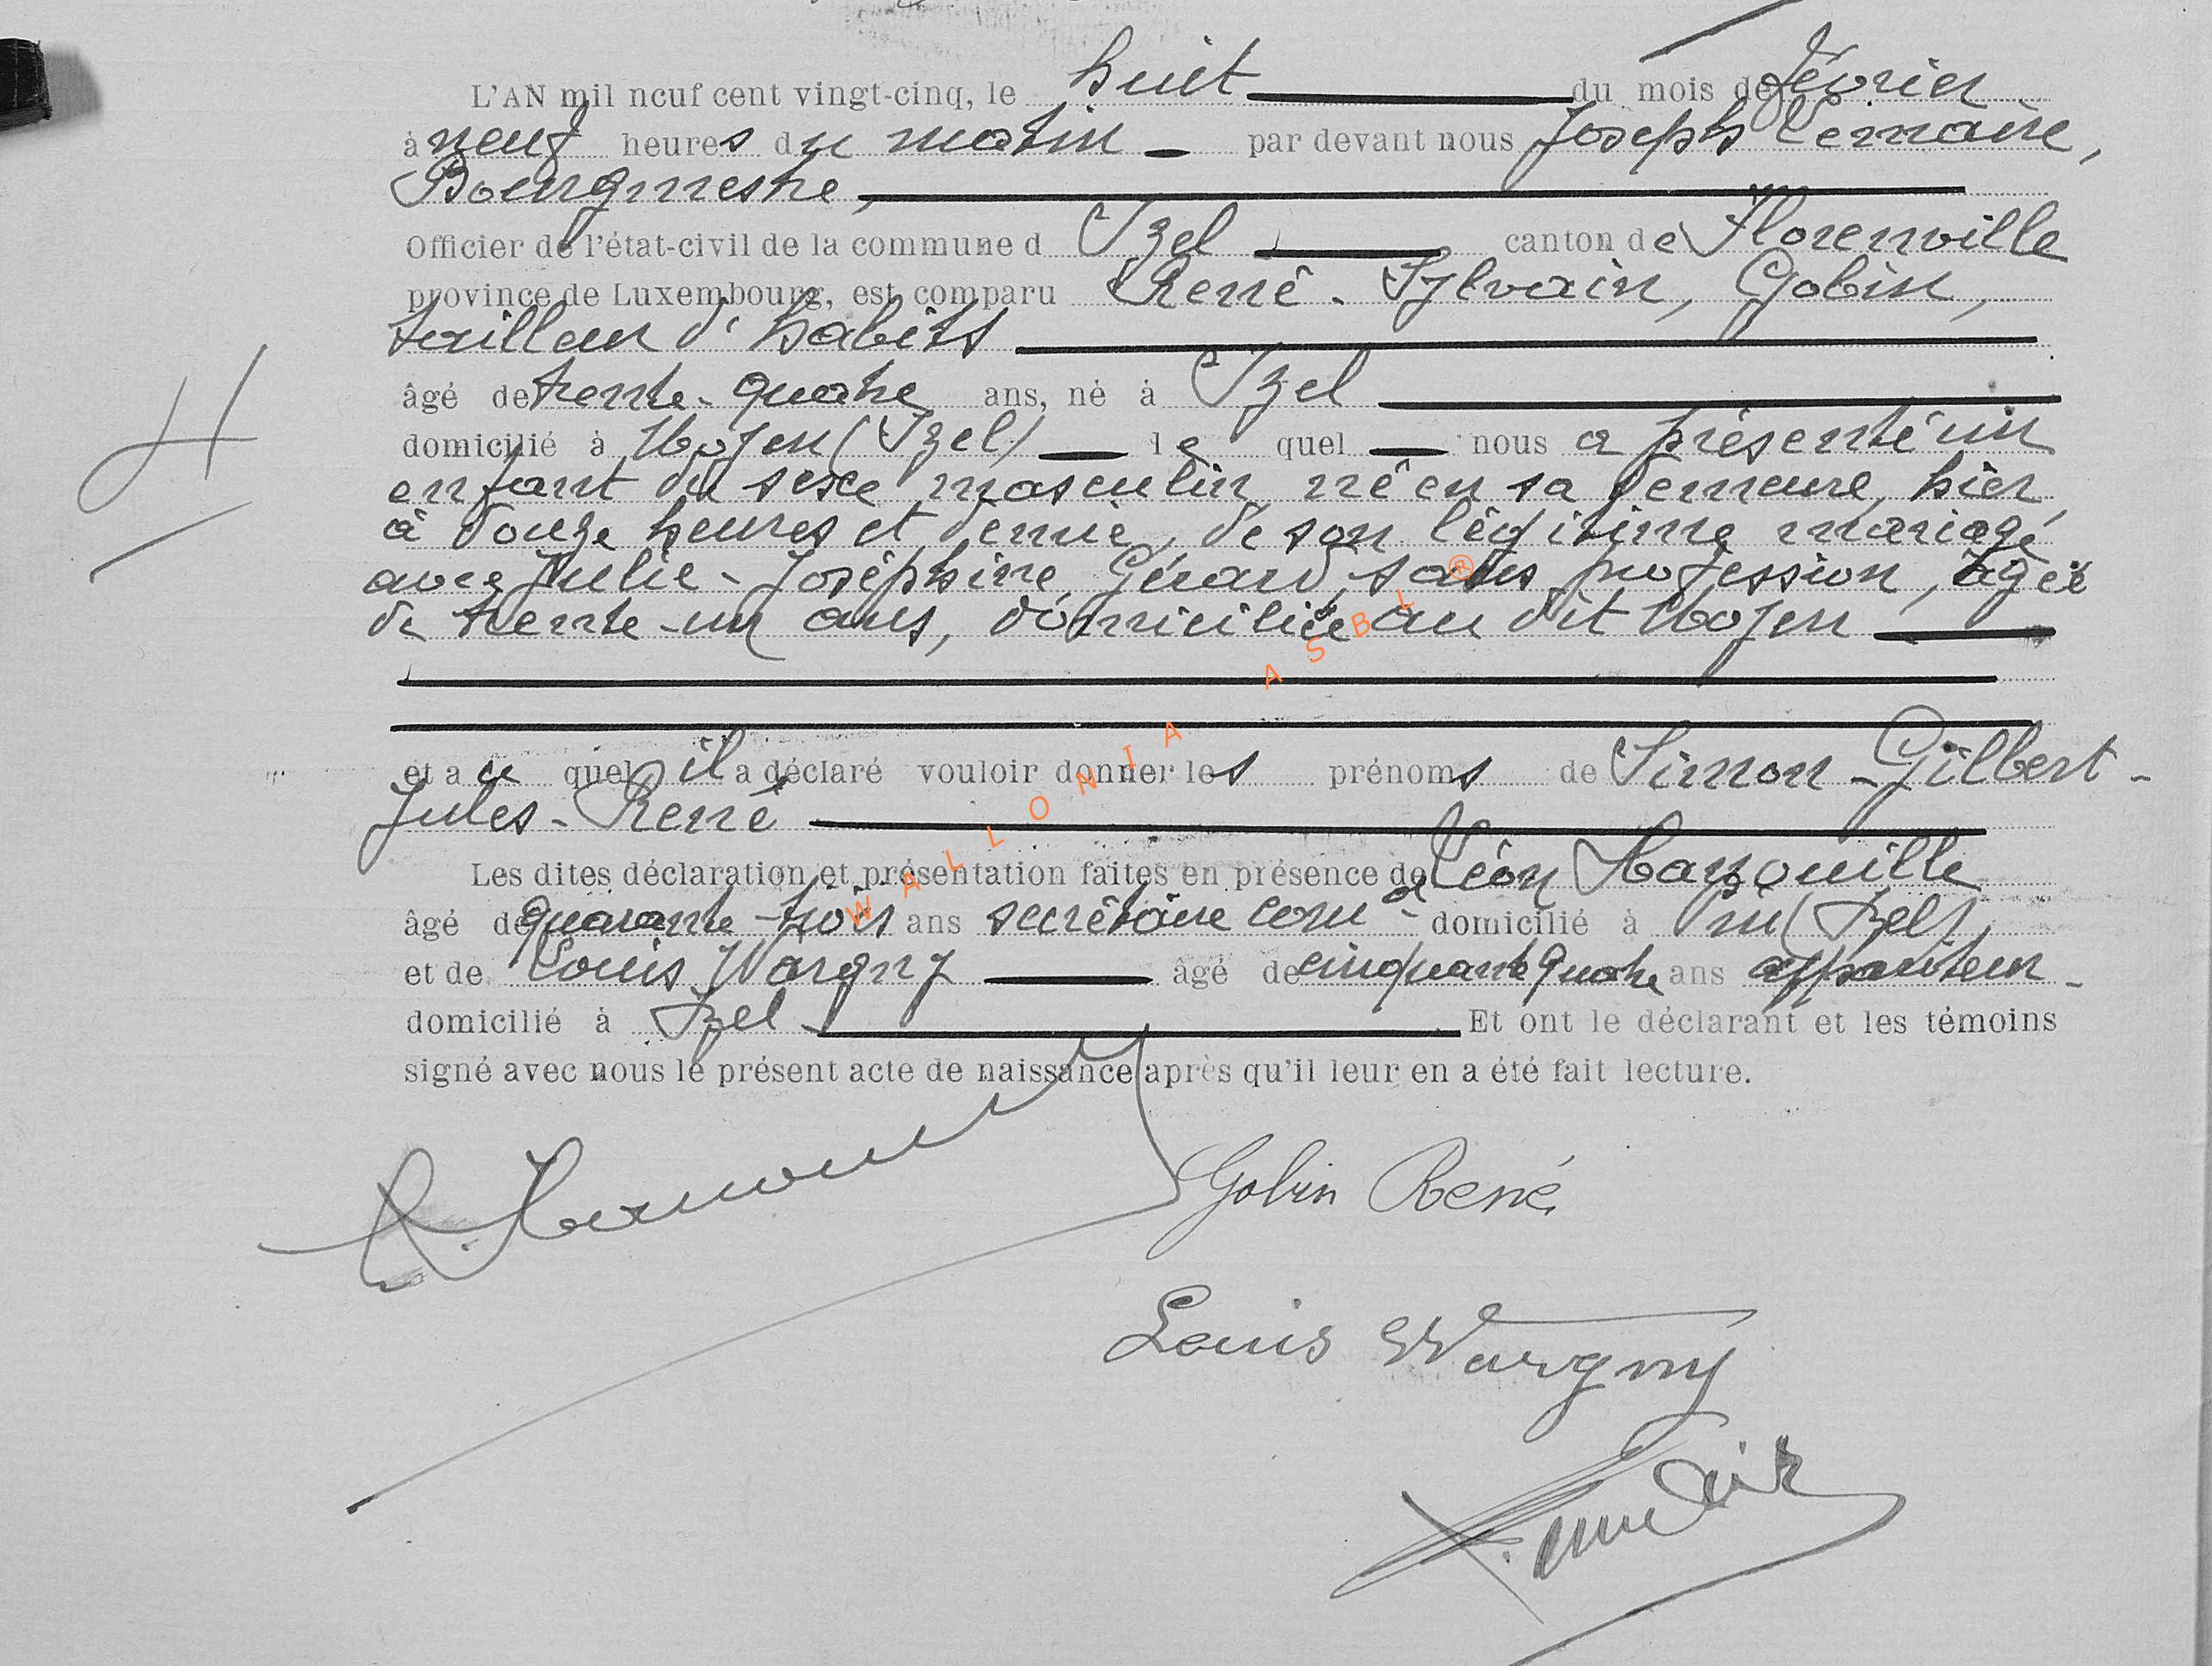 L'AN mil neuf cent vingt-cinq, le huit du mois de février
à neuf heures du matin par devant nous Joseph Lemaire,
Bourgmestre,
Officier de l'état-civil de la commune d Izel canton de Florenville
province de Luxembourg, est comparu René-Sylvain, Gobin,
tailleur d'habits
âgé de trente-quatre ans, né à Izel
domicilié à Moyen (Izel) le quel nous a présenté un
enfant du sexe masculin né en sa demeure, hier
à douze heures et demie, de son légitime mariage
avec Julie-Joséphine Gérard, sans profession, âgée
de trente-un ans, domiciliée au dit Moyen
et au quel il a déclaré vouloir donner les prénoms de Simon-Gilbert-
Jules-René
Les dites déclaration et présentation faites en présence de Léon
âgé de quarante-trois ans secrétaire comal domicilié à Pin (Izel)
et de Louis Wargny âgé de cinquante quatre ans appariteur
domicilié à Izel Et ont le déclarant et les témoins
signé avec nous le présent acte de naissance après qu'il leur en a été fait lecture.
Gobin René
Louis Wargny
H
WALLONIA ASBL ®